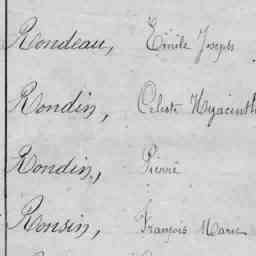 Rondeau, Emile Joseph
Rondin, Céleste Hyacinthe
Rondin, Pierre
Ronsin, François Marie